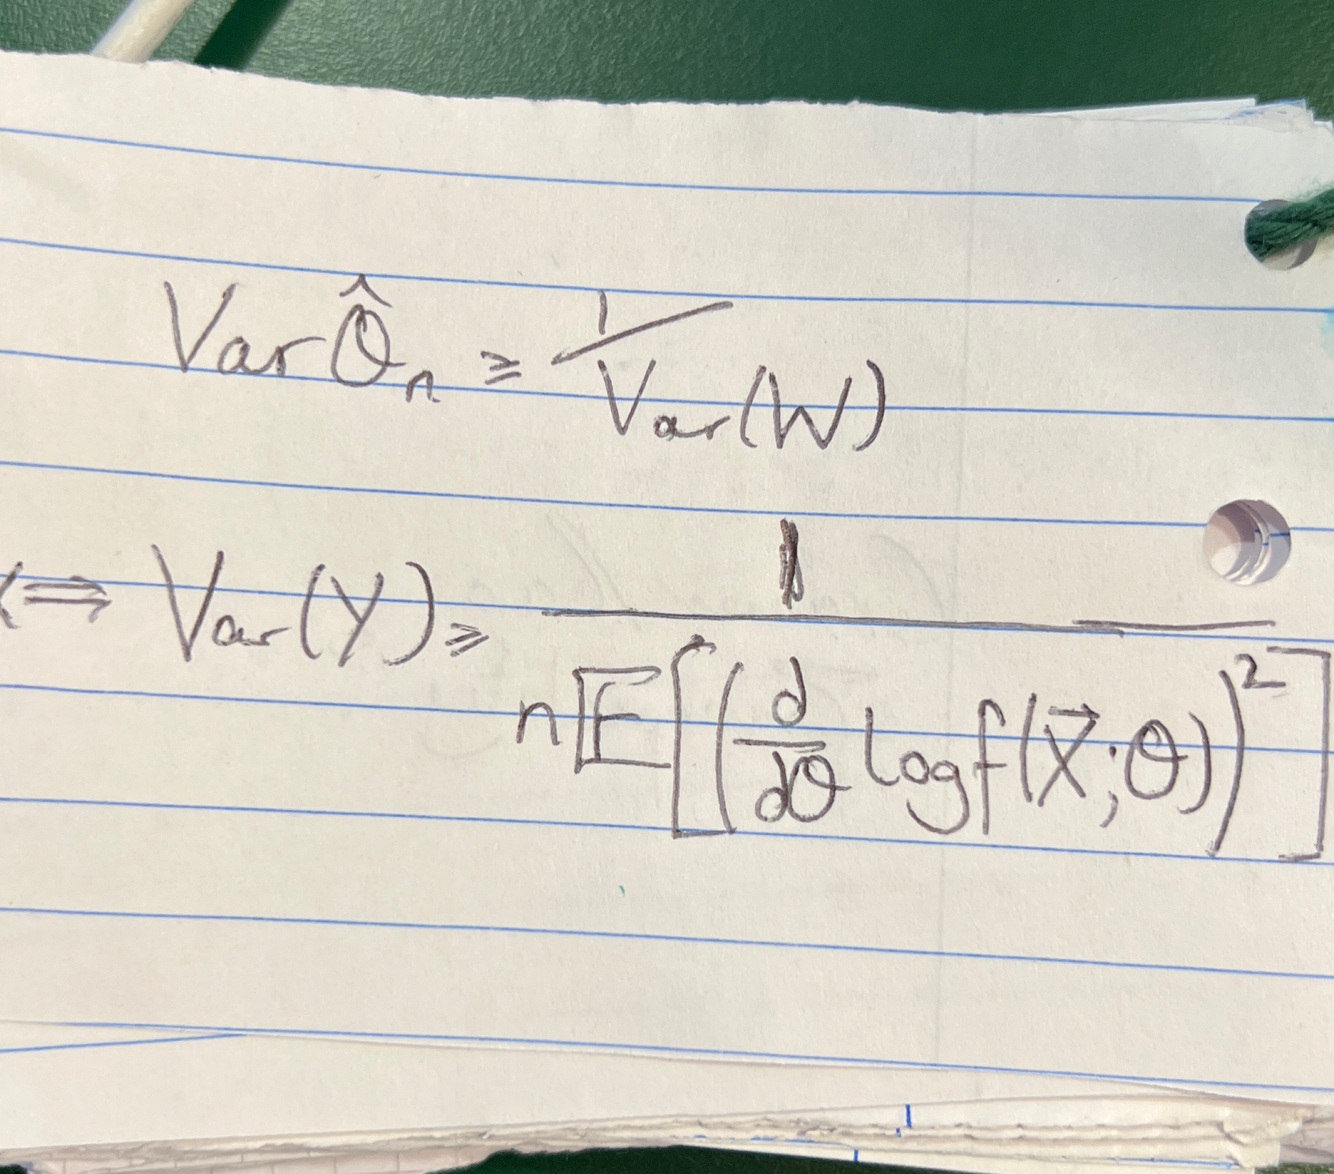 Var θ̂ₙ ≥ 1/Var(W)
⟺ Var(Y) ≥ 1/(n𝔼[(d/dθ log f(X⃗;θ))²])